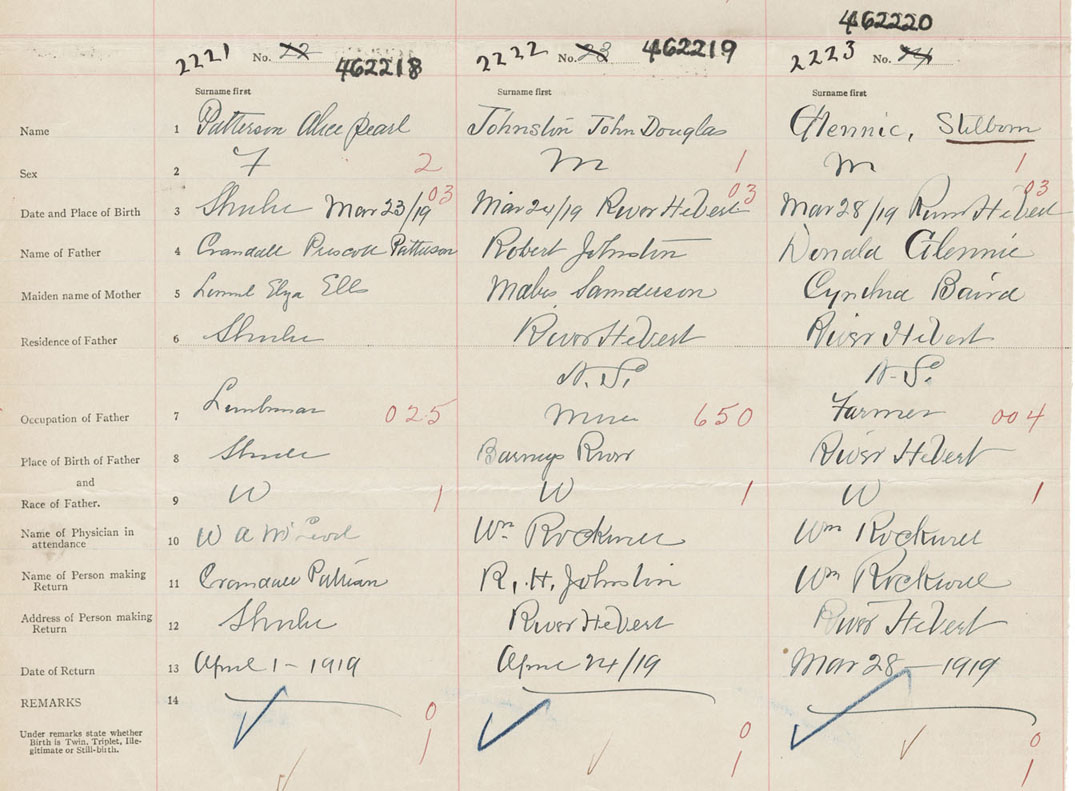 462220
2221 No. 22 462218 2222 No. 23 462219 2223 No. 24
Surname first Surname first Surname first
Name 1 Patterson Alice Pearl Johnston John Douglas Glennie, Stilborn
Sex 2 F 2 M 1 M 1
03 03 03
Date and Place of Birth 3 Shulie Mar 23/19 Mar 24/19 River Hebert Mar 28/19 River Hebert
Name of Father 4 Crandall Prescott Patterson Robert Johnston Donald Glennie
Maiden name of Mother 5 Ells Baird
Residence of Father 6 Shulie River Hebert River Hebert
N.S. N.S.
Occupation of Father 7 025 650 Farmer 004
Place of Birth of Father 8 Shulie Barneys River River Hebert
and
Race of Father. 9 W 1 W 1 W 1
Name of Physician in
attendance 10 W A McLeod Wm Rockwell Wm Rockwell
Name of Person making
Return 11 Crandall Patterson R. H. Johnston Wm Rockwell
Address of Person making
Return 12 Shulie River Hebert River Hebert
Date of Return 13 April 1 - 1919 April 24/19 Mar 28 - 1919
REMARKS 14
0 0 0
Under remarks state whether
Birth is Twin, Triplet, Ille-
gitimate or Still-birth.
1 1 1